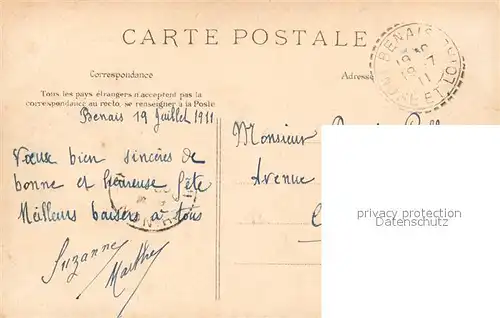 CARTE POSTALE
Correspondance
Adresse
Tous les pays étrangers n'acceptent pas la
correspondance au recto, se renseigner à la Poste
BENAIS
19 -7
11
INDRE ET LOIRE
Benais 19 Juillet 1911
Vœux bien sincères de
bonne et heureuse fête
Meilleurs baisers à tous
Suzanne
Marthe
Monsieur
Avenue
privacy protection
Datenschutz